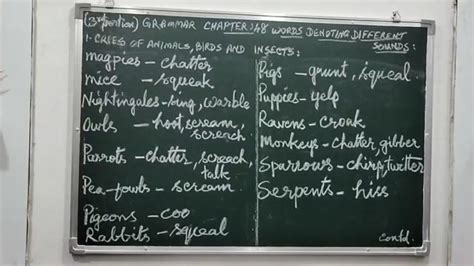 (3rd portion) GRAMMAR CHAPTER:48 WORDS DENOTING DIFFERENT
SOUNDS:
1. CRIES OF ANIMALS, BIRDS AND INSECTS:
Magpies – chatter
mice – squeak
Nightingales – sing, warble
Owls – hoot, scream,
screech
Parrots – chatter, screach,
talk
Pea-fowls – scream
Pigeons – coo
Rabbits – squeal
Pigs – grunt, squeal
Puppies – yelp
Ravens – croak
Monkeys – chatter, gibber
Sparrows – chirp, twitter
Serpents – hiss
Contd.